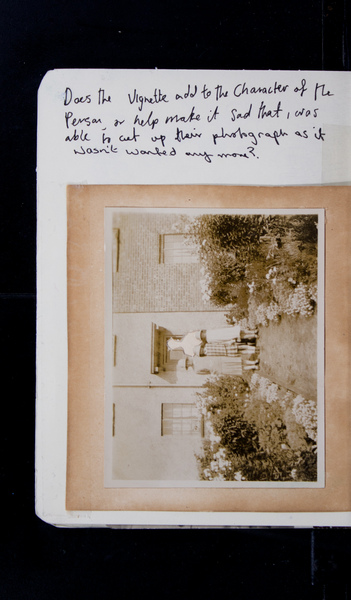 Does the Vignette add to the Character of the
Person, or help make it sad that, I was
able to cut up their photograph as it
wasn't wanted any more?.